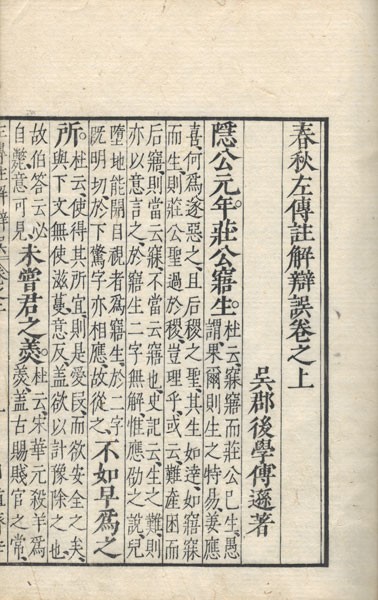 春秋左傳註解辯誤卷之上
吳郡後學傅遜著
隱公元年莊公寤生杜云寐寤而莊公已生愚
謂果爾則生之特易姜應
喜何爲遂惡之且后稷之聖其生如達如寤寐
而生則莊公聖過於稷豈理乎或云難產困而
后寤則當云寐不當云寤也史記云生之難則
亦以意言之於寤生二字無解惟應劭之說兒
墮地能開目視者爲寤生於二字
既明切於下驚字亦相應故從之不如早爲之
所杜云使得其所宜則是愛民而欲安全之矣
與下文無使滋蔓意反盖欲以計豫除之也
故伯荅云必
自斃意可見未嘗君之羹杜云宋華元殺羊爲
羹盖古賜賤官之常